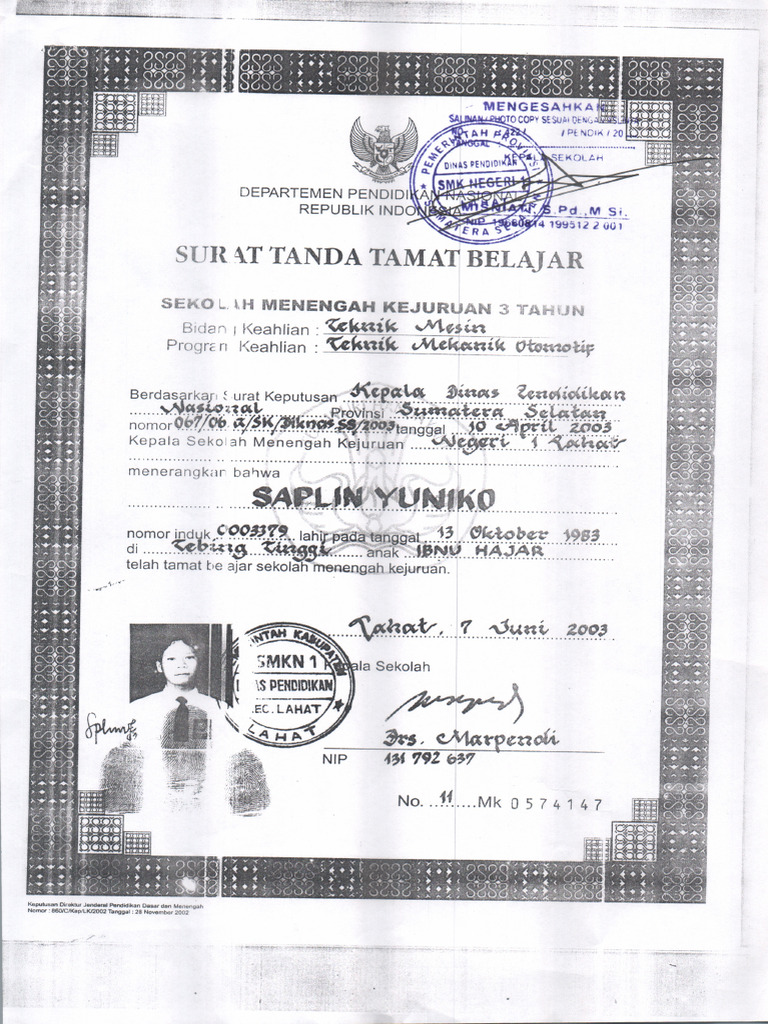 MENGESAHKAN
SALINAN / PHOTO COPY SESUAI DENGAN ASLINYA
NO 422 / / PENDIK / 20
TANGGAL :
KEPALA SEKOLAH
PEMERINTAH PROVINSI
DINAS PENDIDIKAN
SMK NEGERI 1
SUMATERA SELATAN
MISRIATI, S.Pd., M Si.
NIP 19660814 199512 2 001
DEPARTEMEN PENDIDIKAN NASIONAL
REPUBLIK INDONESIA
SURAT TANDA TAMAT BELAJAR
SEKOLAH MENENGAH KEJURUAN 3 TAHUN
Bidang Keahlian : Teknik Mesin
Program Keahlian : Teknik Mekanik Otomotif
Berdasarkan Surat Keputusan Kepala Dinas Pendidikan
Nasional Provinsi Sumatera Selatan
nomor 067/06 a/SK/Diknas SS/2003 tanggal 10 April 2003
Kepala Sekolah Menengah Kejuruan Negeri 1 Lahat
menerangkan bahwa
SAPLIN YUNIKO
nomor induk 0003379 lahir pada tanggal 13 Oktober 1983
di Tebing Tinggi anak IBNU HAJAR
telah tamat belajar sekolah menengah kejuruan.
Lahat, 7 Juni 2003
Kepala Sekolah
INTAH KABUPATEN
SMKN 1
AS PENDIDIKAN
KEC. LAHAT
LAHAT
Drs. Marpendi
NIP 131 792 637
No. 11 Mk 0574147
Keputusan Direktur Jenderal Pendidikan Dasar dan Menengah
Nomor : 860/C/Kep/LK/2002 Tanggal : 28 November 2002